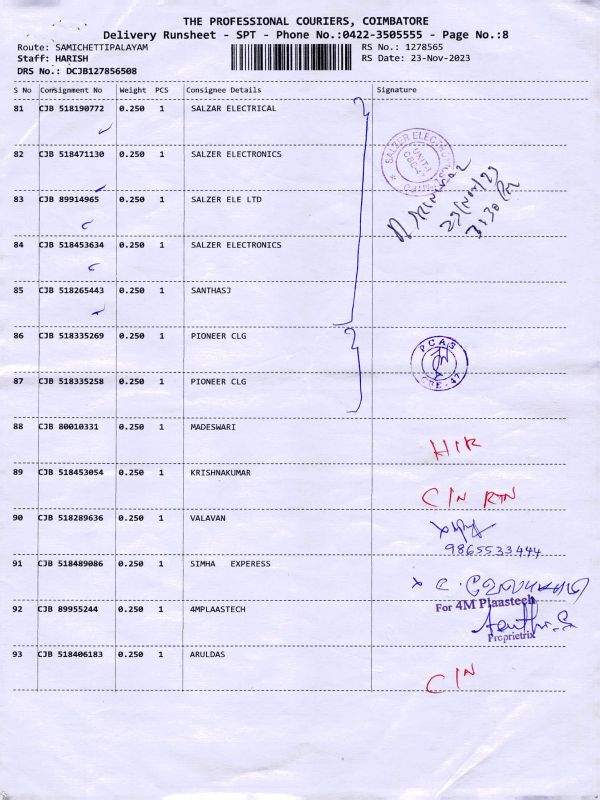 THE PROFESSIONAL COURIERS, COIMBATORE
Delivery Runsheet - SPT - Phone No.:0422-3505555 - Page No.:8
Route: SAMICHETTIPALAYAM
RS No.: 1278565
Staff: HARISH
RS Date: 23-Nov-2023
DRS No.: DCJB127856508
S No Consignment No Weight PCS Consignee Details Signature
81 CJB 518190772 0.250 1 SALZAR ELECTRICAL
82 CJB 518471130 0.250 1 SALZER ELECTRONICS
SALZER ELECTRONICS
UNIT-1
CBE-47
83 CJB 89914965 0.250 1 SALZER ELE LTD
23/Nov/23
3:30 Pm
84 CJB 518453634 0.250 1 SALZER ELECTRONICS
85 CJB 518265443 0.250 1 SANTHASJ
86 CJB 518335269 0.250 1 PIONEER CLG
PCAS
CBE-47
87 CJB 518335258 0.250 1 PIONEER CLG
88 CJB 80010331 0.250 1 MADESWARI
HIR
89 CJB 518453054 0.250 1 KRISHNAKUMAR
C/N RTN
90 CJB 518289636 0.250 1 VALAVAN
9865533444
91 CJB 518489086 0.250 1 SIMHA EXPERESS
92 CJB 89955244 0.250 1 4MPLAASTECH
For 4M Plaastech
Proprietrix
93 CJB 518406183 0.250 1 ARULDAS
C/N